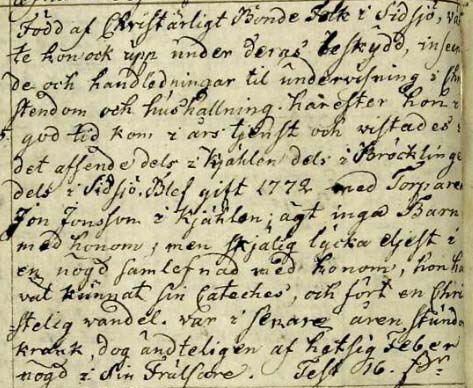 Född af Christärligt Bonde Folk i Sidsjö, väx
te hon ock upp under deras beskydd, inseen
de och handledningar til undervisning i Chri
stendom och hushallning. härefter hon i
god tid kom i årstjenst och vistades i
det afseende dels i Kjählen dels i Bröcklinge
dels i Sidsjö. Blef gift 1772 med Torparen
Jon Jonsson i Kjählen; ägt inga Barn
med honom; men skjälig lycka eljest i
en nögd samlefnad med honom, hon ha
väl kunnat sin Cateches, och fört en Chri
stelig vandel. var i senare åren stund
krank, dog ändteligen af hetsig Feber
nögd i sin Frälsare. Test 16.